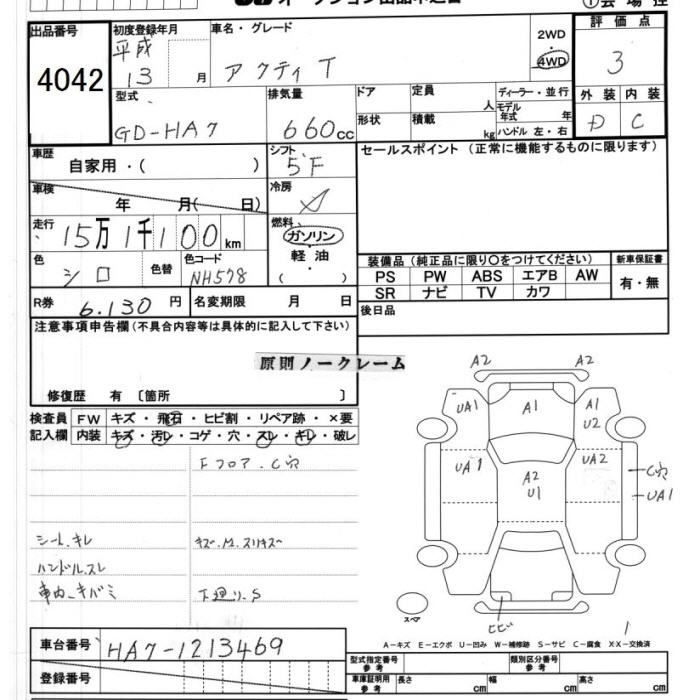 出品番号
4042
初度登録年月
平成
13 月
車名・グレード
アクティ T
2WD
・
4WD
評価点
3
型式
GD-HA7
排気量
660cc
ドア
形状
定員
人
積載
kg
ディーラー・並行
モデル年式 年
ハンドル 左・右
外装 内装
D C
車歴
自家用・( )
シフト
5F
車検
年 月( 日)
冷房
走行
15万1千100km
燃料
ガソリン
・
軽油
( ・ )
色
シロ
色替
色コード
NH578
R券
6.130 円
名変期限 月 日
セールスポイント (正常に機能するものに限ります)
装備品(純正品に限り○をつけてください)
PS PW ABS エアB AW
SR ナビ TV カワ
新車保証書
有・無
後日品
注意事項申告欄(不具合内容等は具体的に記入して下さい)
原則ノークレーム
修復歴 有〔箇所 〕
検査員記入欄
FW キズ・飛石・ヒビ割・リペア跡・×要
内装 キズ・汚レ・コゲ・穴・スレ・キレ・破レ
Fフロア.C穴
シート.キレ
キズ.M.スリキズ
ハンドル.スレ
車内.キバミ
下廻り.S
A2 A2
UA1 A1 A1
U2
UA1 A2 UA2
U1
C穴
UA1
スペア
ヒビ
A－キズ E－エクボ U－凹み W－補修跡 S－サビ C－腐食 XX－交換済
車台番号
HA7-1213469
登録番号
型式指定番号
参考
類別区分番号
参考
車庫証明用
参考
長さ cm
幅 cm
高さ cm